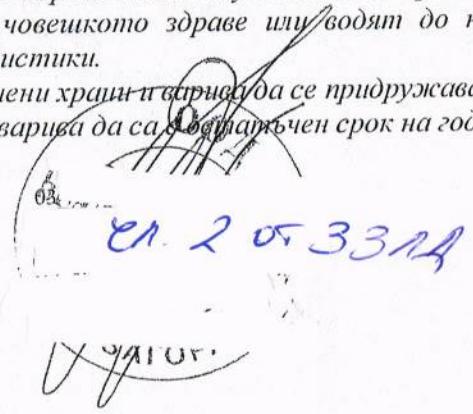 човешкото здраве или водят до
истики.
чени храни и варива да се придружава
варива да са с остатъчен срок на год
ОЗ
чл. 2 от ЗЗЛД
ЗАГОР